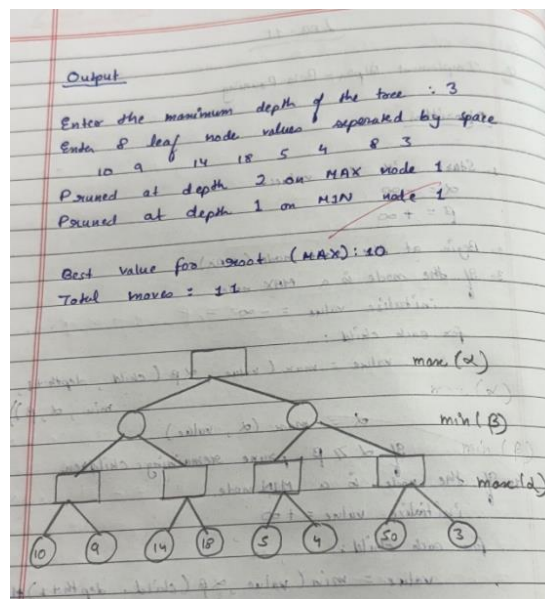 Output
Enter the maximum depth of the tree : 3
Enter 8 leaf node values seperated by space
10 9 14 18 5 4 8 3
Pruned at depth 2 on MAX node 1
Pruned at depth 1 on MIN node 1
Best value for root (MAX): 10
Total moves : 11
max (α)
min (β)
max (α)
10 9 14 18 5 4 50 3